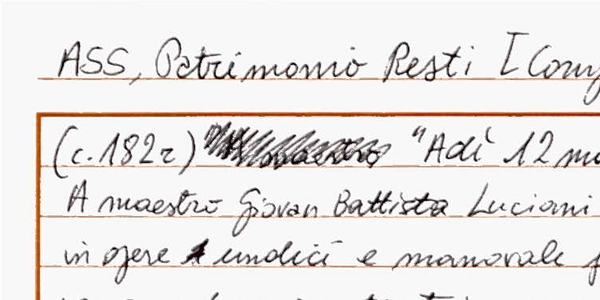 ASS, Patrimonio Resti [Comp
(c.182r) "Adì 12 ma
A maestro Giovan Battista Luciani
in opere undici e manovale